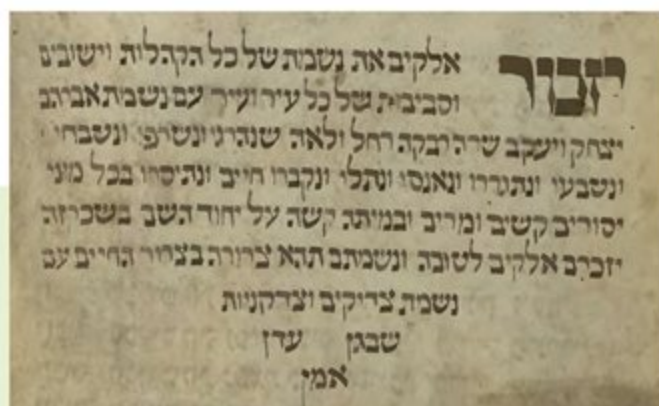 יזכור אלקים את נשמת של כל הקהלות וישובים
וסביבות של כל עיר ועיר עם נשמת אברהם
יצחק ויעקב שרה רבקה רחל ולאה שנהרגו ונשרפו ונשבחו
ונשבעו ונתגררו ונאנסו ונתלו ונקברו חיים ונהיסרו בכל מיני
יסורים קשים ומרים ובמיתה קשה על יחוד השם בשכר זה
יזכרם אלקים לטובה ונשמתם תהא צרורה בצרור החיים עם
נשמת צדיקים וצדקניות
שבגן עדן
אמן